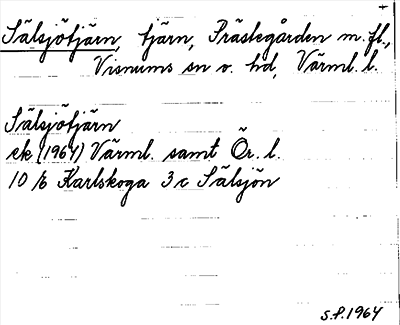 Sälsjötjärn, tjärn, Prästegården m. fl.,
Visnums sn o. hd, Värml. l.
Sälsjötjärn
ek (1964) Värml. samt Ör. l.
10 E Karlskoga 3 c Sälsjön
S.P. 1964